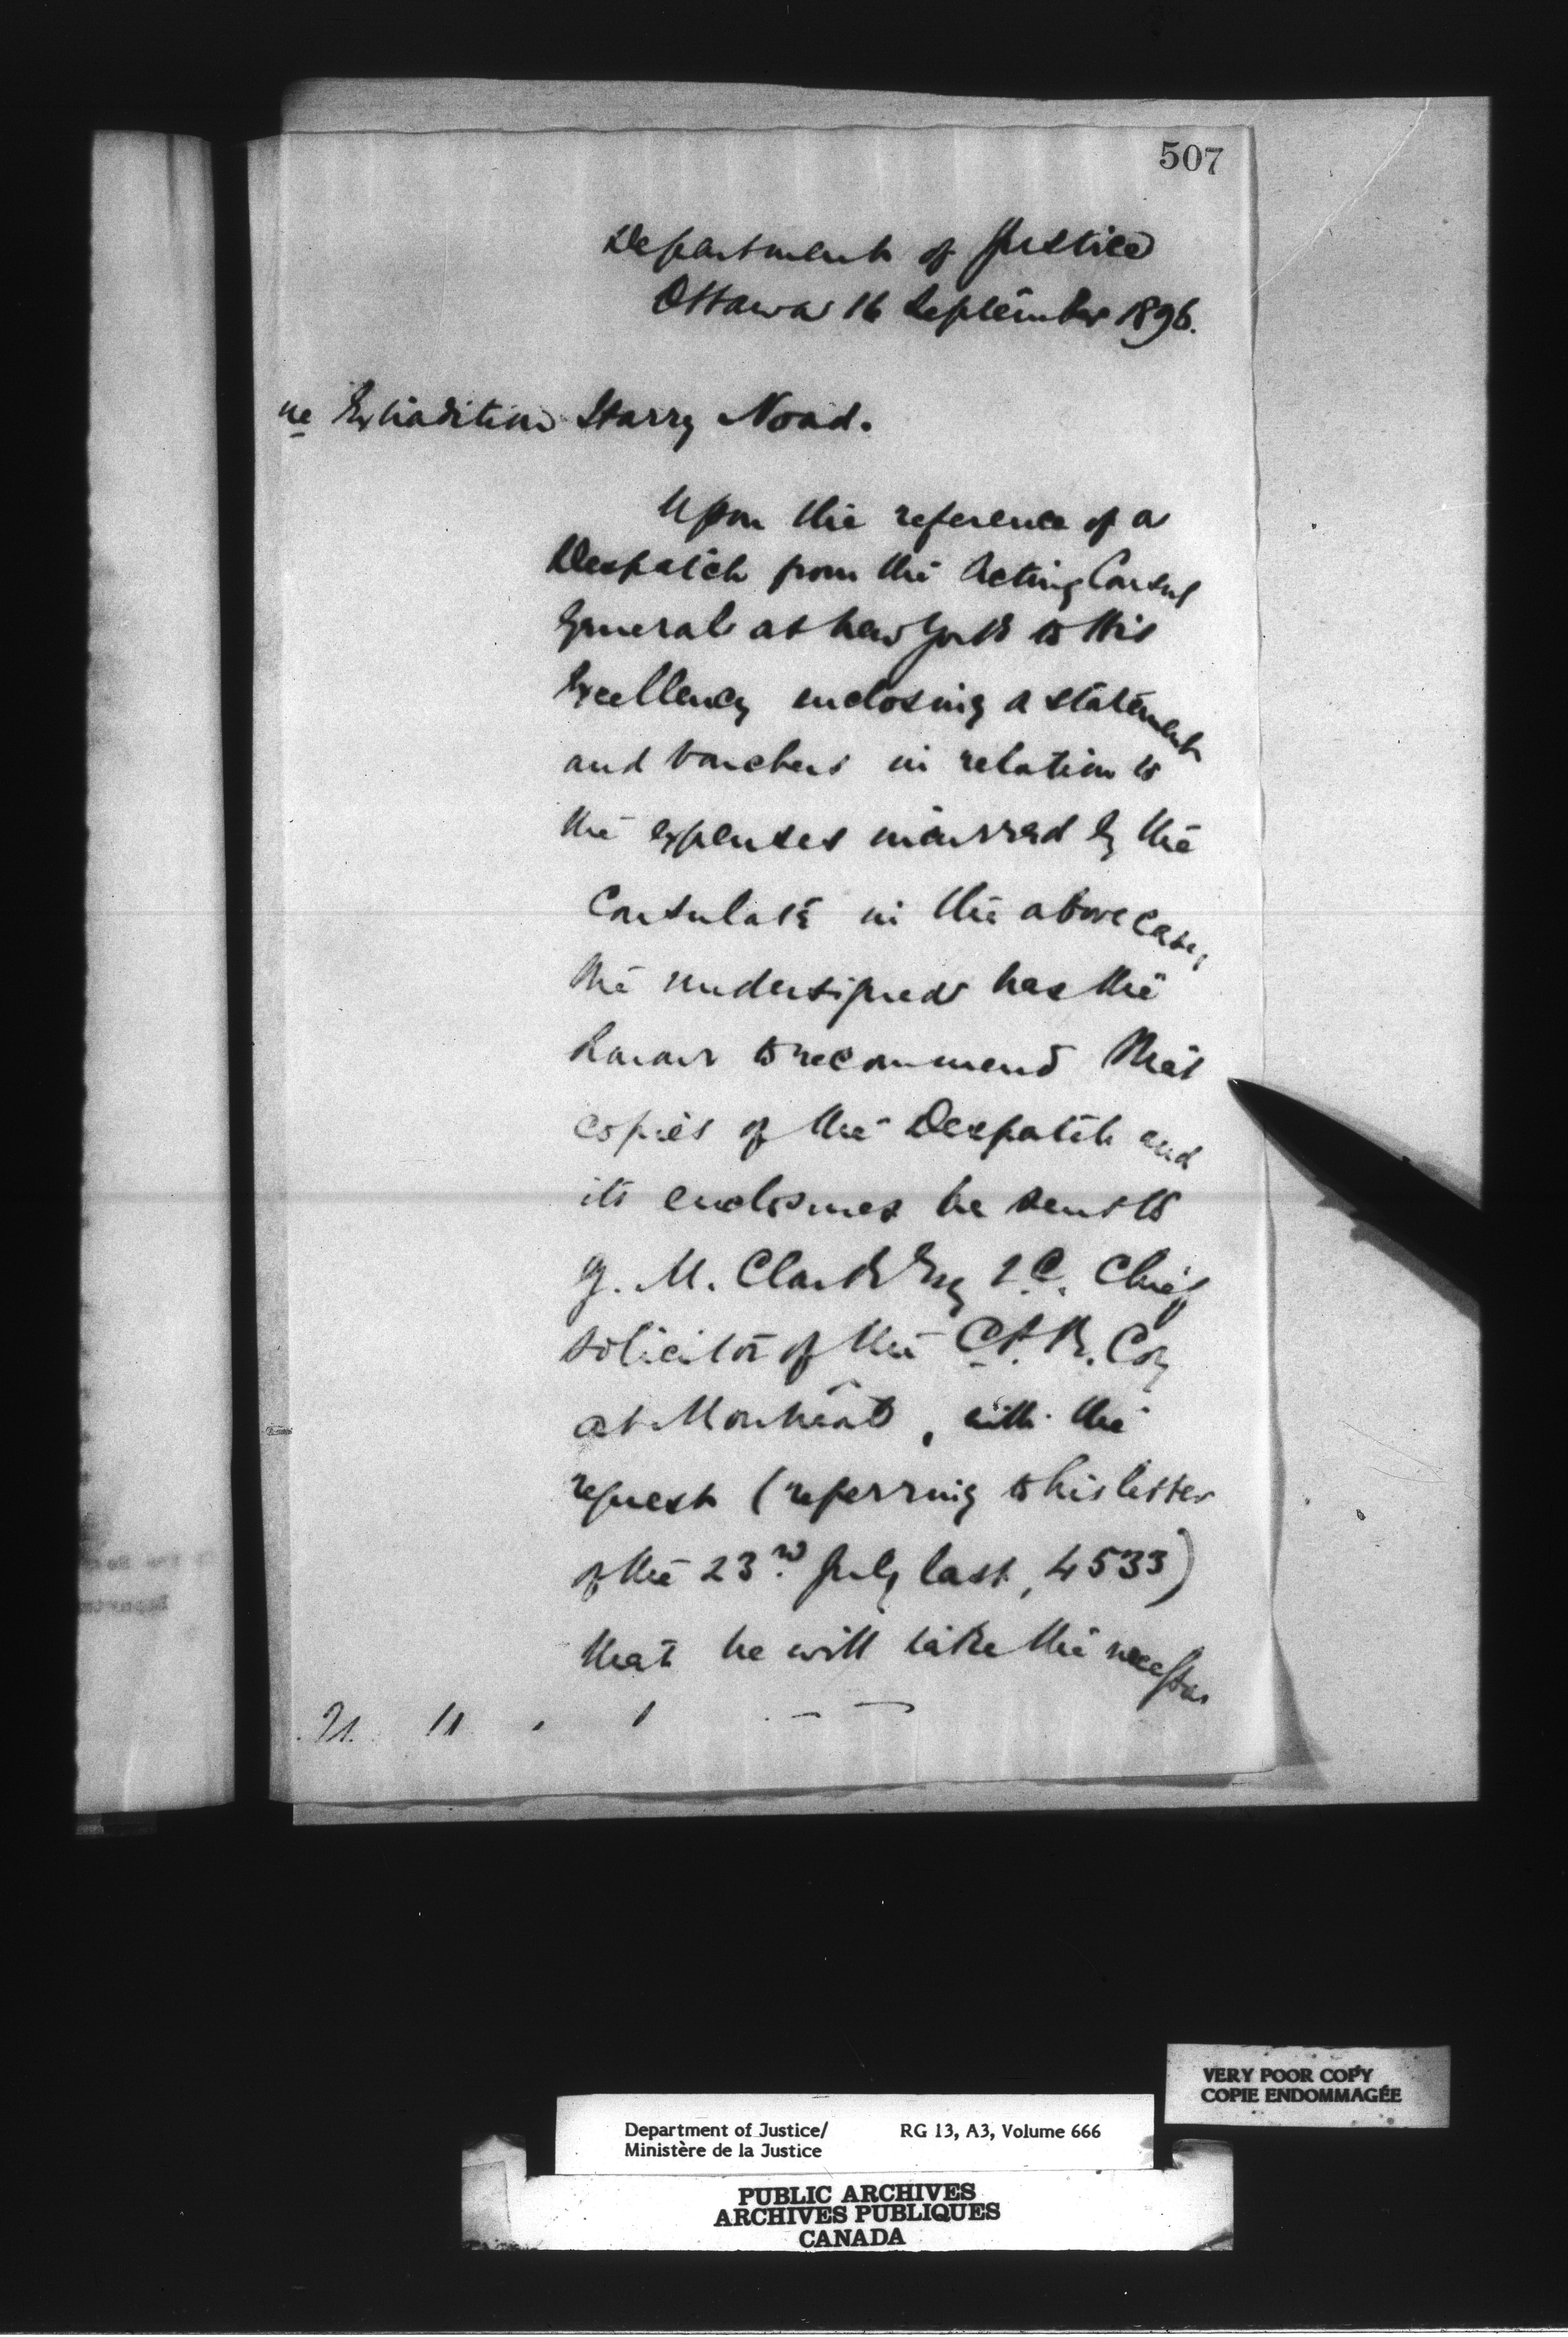 507
Department of Justice
Ottawa 16 September 1896.
re Extradition Harry Noad.
Upon the reference of a
Despatch from the Acting Consul
General at New York to His
Excellency enclosing a statement
and vouchers in relation to
the expenses incurred by the
Consulate in the above case,
the undersigned has the
honour to recommend that
copies of the Despatch and
its enclosures be sent to
G. M. Clark Esq Q.C. Chief
Solicitor of the C.P.R. Coy
at Montreal, with the
request (referring to his letter
of the 23rd July last, 4533)
that he will take the necessar
VERY POOR COPY
COPIE ENDOMMAGÉE
Department of Justice/ RG 13, A3, Volume 666
Ministère de la Justice
PUBLIC ARCHIVES
ARCHIVES PUBLIQUES
CANADA